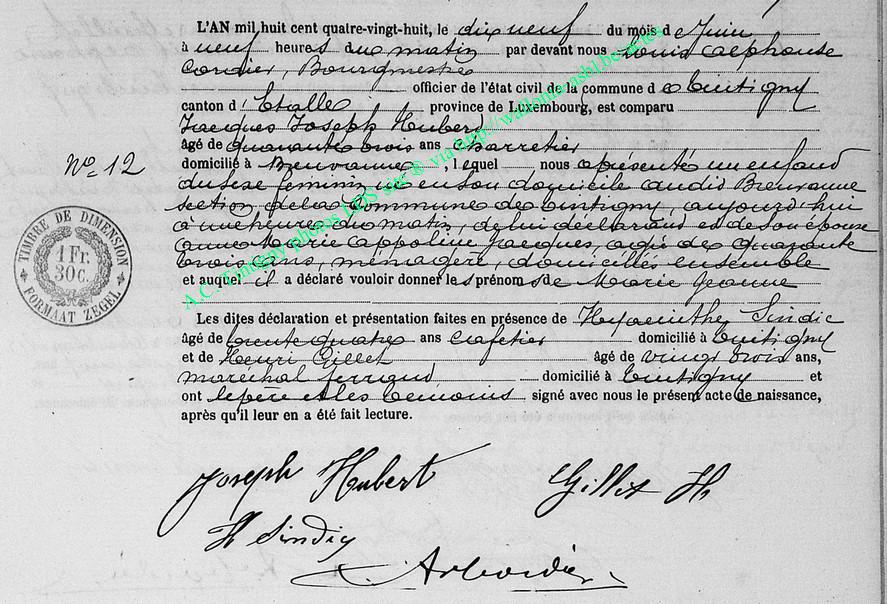 L'AN mil huit cent quatre-vingt-huit, le dix neuf du mois de Juin
à neuf heures du matin par devant nous Louis Alphonse
Cordier, Bourgmestre
officier de l'état civil de la commune de Tintigny
canton d'Etalle province de Luxembourg, est comparu
Jacques Joseph Hubert
âgé de quarante trois ans charretier
N° 12
domicilié à Breuvanne, lequel nous a présenté un enfant
du sexe feminin né en son domicile audit Breuvanne
section de la Commune de Tintigny, aujourd'hui
à une heure du matin, de lui déclarant et de son épouse
Anne Marie Appoline Jacques, agée de quarante
trois ans, ménagère, domiciliés ensemble
et auquel il a déclaré vouloir donner les prénoms de Marie Jeanne
TIMBRE DE DIMENSION
1 Fr.
30 C.
FORMAAT ZEGEL
Les dites déclaration et présentation faites en présence de Hyacinthe Sindic
âgé de trente quatre ans cafetier domicilié à Tintigny
et de Henri Gillet âgé de vingt trois ans,
maréchal ferrand domicilié à Tintigny et
ont le père et les temoins signé avec nous le présent acte de naissance,
après qu'il leur en a été fait lecture.
Joseph Hubert Gillet H
H Sindig
A.C. Tintigny photos LDS site ® via http://wallonfamsbl.be/actes